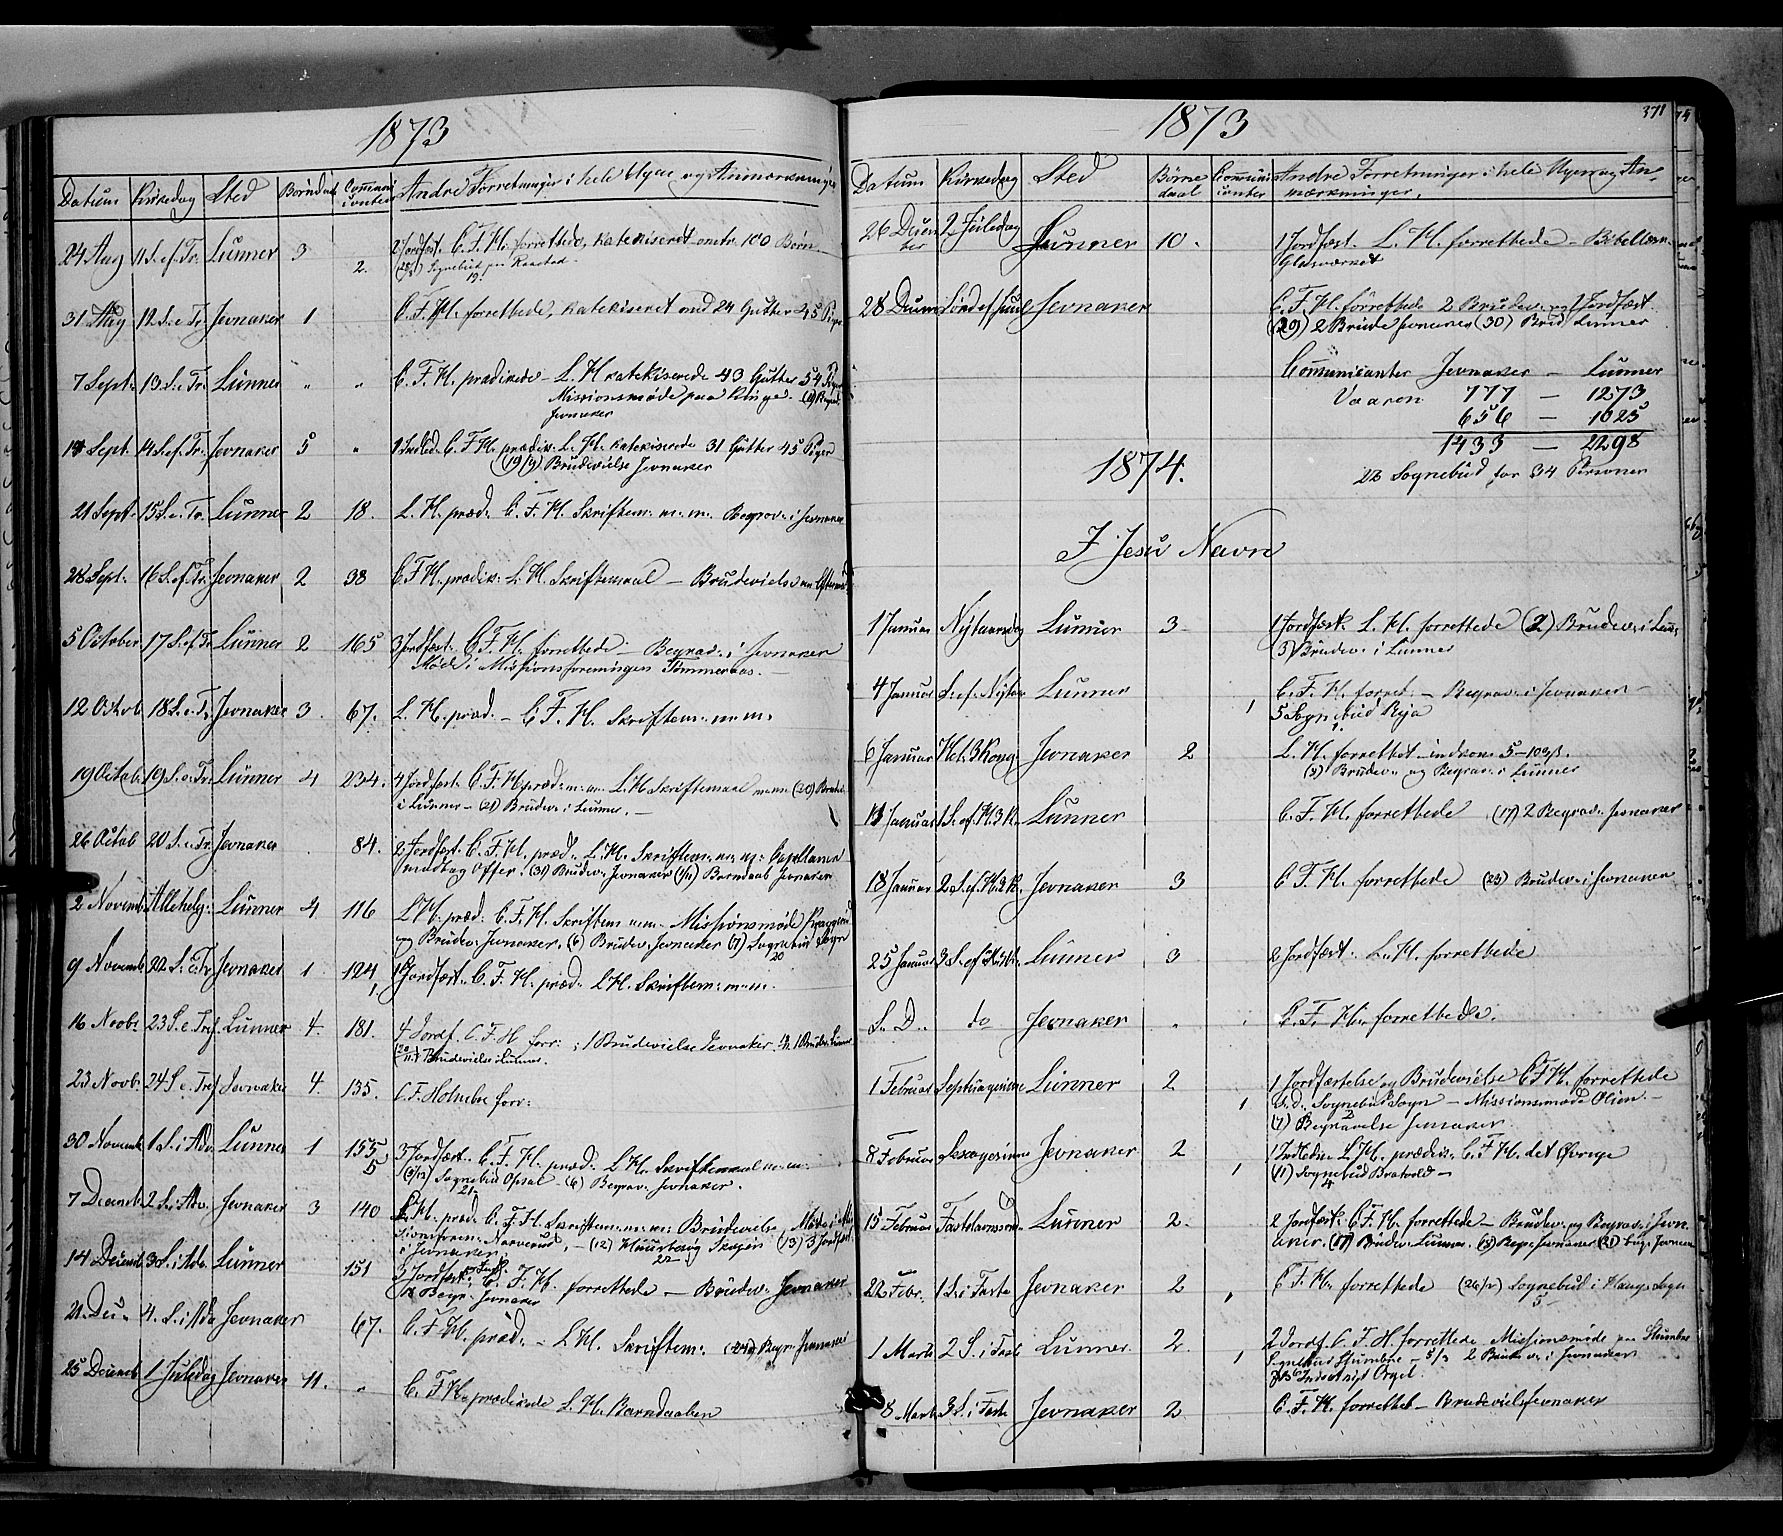 1873
Datum Kirkedag Sted Barnedaab Communicanter Andre Forretninger i hele Ugen og Anmærkninger
24 Aug 11 S. ef. Tr. Lunner 3 2. 2 Jordfæst. C. F. H. forrettede, katekiseret omtr. 100 Børn
Sognebud paa Raastad.
19.
31 Aug 12 S. e. Tr. Jevnaker 1 C. F. H. forrettede, katekiseret med 24 Gutter 35 Piger
7 Sept. 13 S. e. Tr. Lunner " " C. F. H. prædikede – L. H. katekiserede 43 Gutter 54 Piger
Missionsmøde paa Ringe. Begrav.
Jevnaker
14 Sept. 14 S. ef. Tr. Jevnaker 5 " 1 Indled. C. F. H. prædik. L. H. katekiserede 31 Gutter 45 Piger
(19/9) Brudevielse Jevnaker
21 Sept. 15 S. e. Tr. Lunner 2 18. L. H. præd. C. F. H. Skriftem. m. m. Begrav. i Jevnaker
28 Sept. 16 S. ef. Tr. Jevnaker 2 38 C. F. H. prædik. L. H. Skriftemaal – Brudevielse
5 October 17 S. ef. Tr. Lunner 2 165 3 Jordfæst. C. F. H. forrettede – Begrav. i Jevnaker
Møde i Missionsforeningen Tømmeraas. –
12 Octob 18 S. e. Tr. Jevnaker 3. 67. L. H. præd. – C. F. H. Skriftem. m. m.
19 Octob. 19 S. e. Tr. Lunner 4 234. 4 Jordfæst. C. F. H. præd. m. m. L. H. Skriftemaal m. m. (20) Brudev.
i Lunner – (21) Brudev. i Lunner. –
26 Octob 20 S. e. Tr. Jevnaker 84. 2 Jordfæst. C. F. H. præd. L. H. Skriftem. m. m. Capellanen
modtog Offer. (31) Brudev. Jevnaker (1/11) Barnedaab Jevnaker
2 Novemb. Allehelg. Lunner 4 116 L. H. præd. C. F. H. Skriftem m. m. – Missionsmøde
og Brudev. Jevnaker. (6) Brudev. Jevnaker (7) Sognebud Sogn
20
9 Novemb 22 S. e. Tr Jevnaker 1. 124, 1 Jordfæst. C. F. H. præd. L. H. Skriftem. m. m.
16 Novb. 23 S. e. Tref. Lunner 4. 181. 4 Jordf. C. F. H. forr. ; 1 Brudevielse Jevnaker. 1 Brudev. Lunner
Brudevielse i Lunner.
23 Novb. 24 S. e. Tref Jevnaker 4. 135. C. F. Holmboe forr.
30 Novemb 1 S. i Adv Lunner 1 153 3 Jordfæst. C. F. H. præd. L. H. Skriftemaal m. m.
5 (3/12) Sognebud Opsal (6) Begrav. Jevnaker.
21
7 Decemb 2 S. i Adv. Jevnaker 3 140 L. H. præd C. F. H. Skriftem. m. m. Brudevielse, Møde i
Norverud, – (12) Huusbesøg Skøjen (13) 3 Jordfæst.
i Jevnaker. 22
14 Decemb 3 S. i Adv. Lunner 151 3 Jordfæst. C. F. H. forrettede – Brudev. Jevnaker
Begr. Jevnaker
21 Dec. 4. S. i Adv Jevnaker 67. C. F. H. præd. – L. H. Skriftem. Begr. Jevnaker
25 Decemb 1 Juledag Jevnaker 11. " C. F. H. prædikede L. H. Barnedaaben
1873 371
Datum Kirkedag Sted Børne daab Communicanter Andre Forretninger i hele Ugen og Anmærkninger.
26 December 2 Juledag Lunner 10. 1 Jordfæst. L. H. forrettede – Bibellæsn.
Glasværket
28 Decem Sønd ef. Juul Jevnaker C. F. H. forrettede 2 Brudev. og 1 Jordfæst.
(29) 2 Brudev Jevnaker (30) Brud Lunner
Comunicanter Jevnaker – Lunner
Vaaren 777 – 1273
656 – 1025
1433 – 2298
22 Sognebud for 34 Personer
1874.
I Jesu Navn
1 Januar Nytaarsdag Lunner 3 1 Jordfæst. L. H. forrettede (2) Brudev. i Lunn.
(3) Brudev. i Lunner
4 Januar S. ef. Nytaar Lunner C. F. H. forret. – Begrav. i Jevnaker –
1 5 Sognebud Røja
1.
6 Januar Hel. 3 Kong. Jevnaker 2 L. H. forrettet – indkom 5 – 103 ß.
Brudev. og Begrav. i Lunner
11 Januar 1 S. ef. H. 3 K. Lunner C. F. H. forrettede (17) 2 Begrav. Jevnaker
18 Januar 2 S. ef. H. 3 K. Jevnaker 3 C. F. H. forrettede (23) Brudev. i Jevnaker
25 Januar 3 S. ef H. 3 K. Lunner 3 2 Jordfæst. L. H. forrettede
S. D. do Jevnaker " " C. F. H. forrettede.
1 Februar Septuagesima Lunner 2 1 Jordfæstelse og Brudevielse C. F. H. forrettede
1 S. D. Sognebud Sogn – Missionsmøde Olien. –
2
(7) Begravelse Jevnaker
8 Februar Sexagesima Jevnaker 2 1 Indled. L. H. prædik. C. F. H. det Øvrige
1 (11) Sognebud Bratvold –
4
15 Februar Fastelavnssønd. Lunner 2. 2 Jordfæst. C. F. H. forrettede – Brudev. og Begrav. i Jevnaker. (17) Brudev. Lunner. (18) Begr. Jevnaker (21) Begr. Jevnaker
22 Febr. 1 S. i Faste Jevnaker 2 1 C. F. H. forrettede (26/2) Sognebud i Haug. Sogn
5
1 Marts 2 S. i Faste Lunner 2. 2 Jordf. C. F. H. forrettede Missionsmøde paa Stumbne
1 Sognebud Stumbne – 5/3 2 Brudev. i Jevnaker
6 Indvitnet Orgel.
8 Marts 3 S. i Faste Jevnaker 2 C. F. H. forrettet – Brudevielse Jevnaker